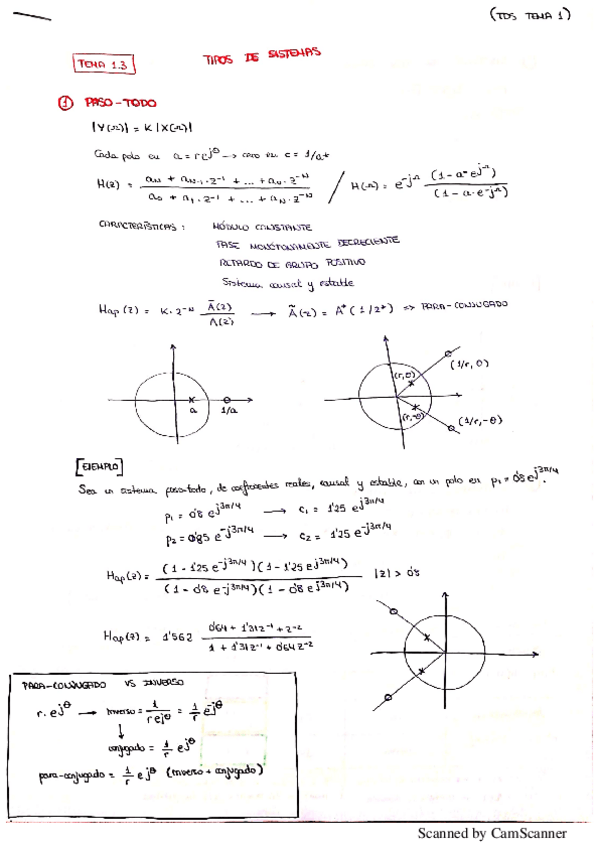 (TDS TEMA 1)
TEMA 1.3
TIPOS DE SISTEMAS
① PASO-TODO
|Y(Ω)| = K |X(Ω)|
Cada polo en a = r e^jθ → cero en c = 1/a*
H(z) = (a_N + a_N-1 · z^-1 + ... + a_N · z^-N) / (a_0 + a_1 · z^-1 + ... + a_N · z^-N) / H(Ω) = e^-jΩ (1 - a* e^jΩ) / (1 - a · e^-jΩ)
CARACTERÍSTICAS : MÓDULO CONSTANTE
FASE MONÓTONAMENTE DECRECIENTE
RETARDO DE GRUPO POSITIVO
Sistema causal y estable
Hap (z) = K · z^-N Ã(z) / A(z) → Ã(z) = A* (1/z*) => PARA-CONJUGADO
a 1/a
(r, θ) (1/r, θ)
(r, -θ) (1/r, -θ)
[EJEMPLO]
Sea un sistema paso-todo, de coeficientes reales, causal y estable, con un polo en p1 = 0'8 e^j3π/4.
p1 = 0'8 e^j3π/4 → c1 = 1'25 e^j3π/4
p2 = 0'85 e^-j3π/4 → c2 = 1'25 e^-j3π/4
Hap(z) = (1 - 1'25 e^-j3π/4)(1 - 1'25 e^j3π/4) / (1 - 0'8 e^-j3π/4)(1 - 0'8 e^j3π/4) |z| > 0'8
Hap(z) = 1'562 (0'64 + 1'31z^-1 + z^-2) / (1 + 1'13z^-1 + 0'64 z^-2)
PARA-CONJUGADO VS INVERSO
r. e^jθ → Inverso = 1 / r e^jθ = 1/r e^-jθ
conjugado = 1/r e^jθ
para-conjugado = 1/r e^jθ (Inverso + conjugado)
Scanned by CamScanner